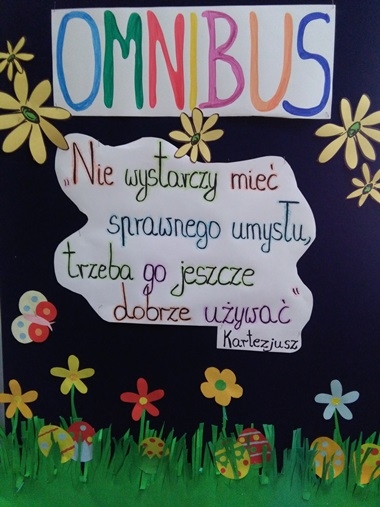 OMNIBUS
„Nie wystarczy mieć
sprawnego umysłu,
trzeba go jeszcze
dobrze używać"
Kartezjusz